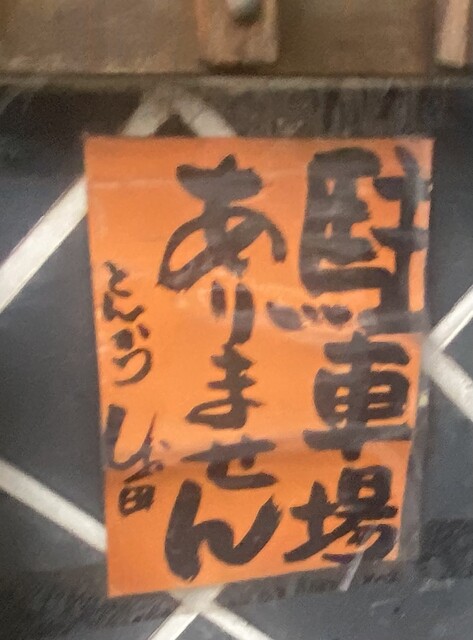 駐車場
ありません
とんかつ